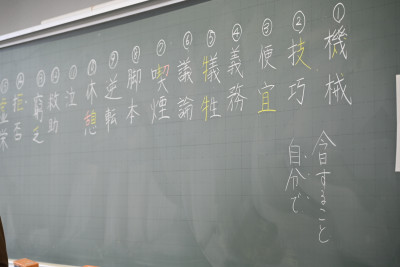 ①機械
今日すること
自分で
②技巧
③便宜
④義務
⑤犠牲
⑥議論
⑦喫煙
⑧脚本
⑨逆転
休憩
泣
救助
窮乏
拒否
虚栄